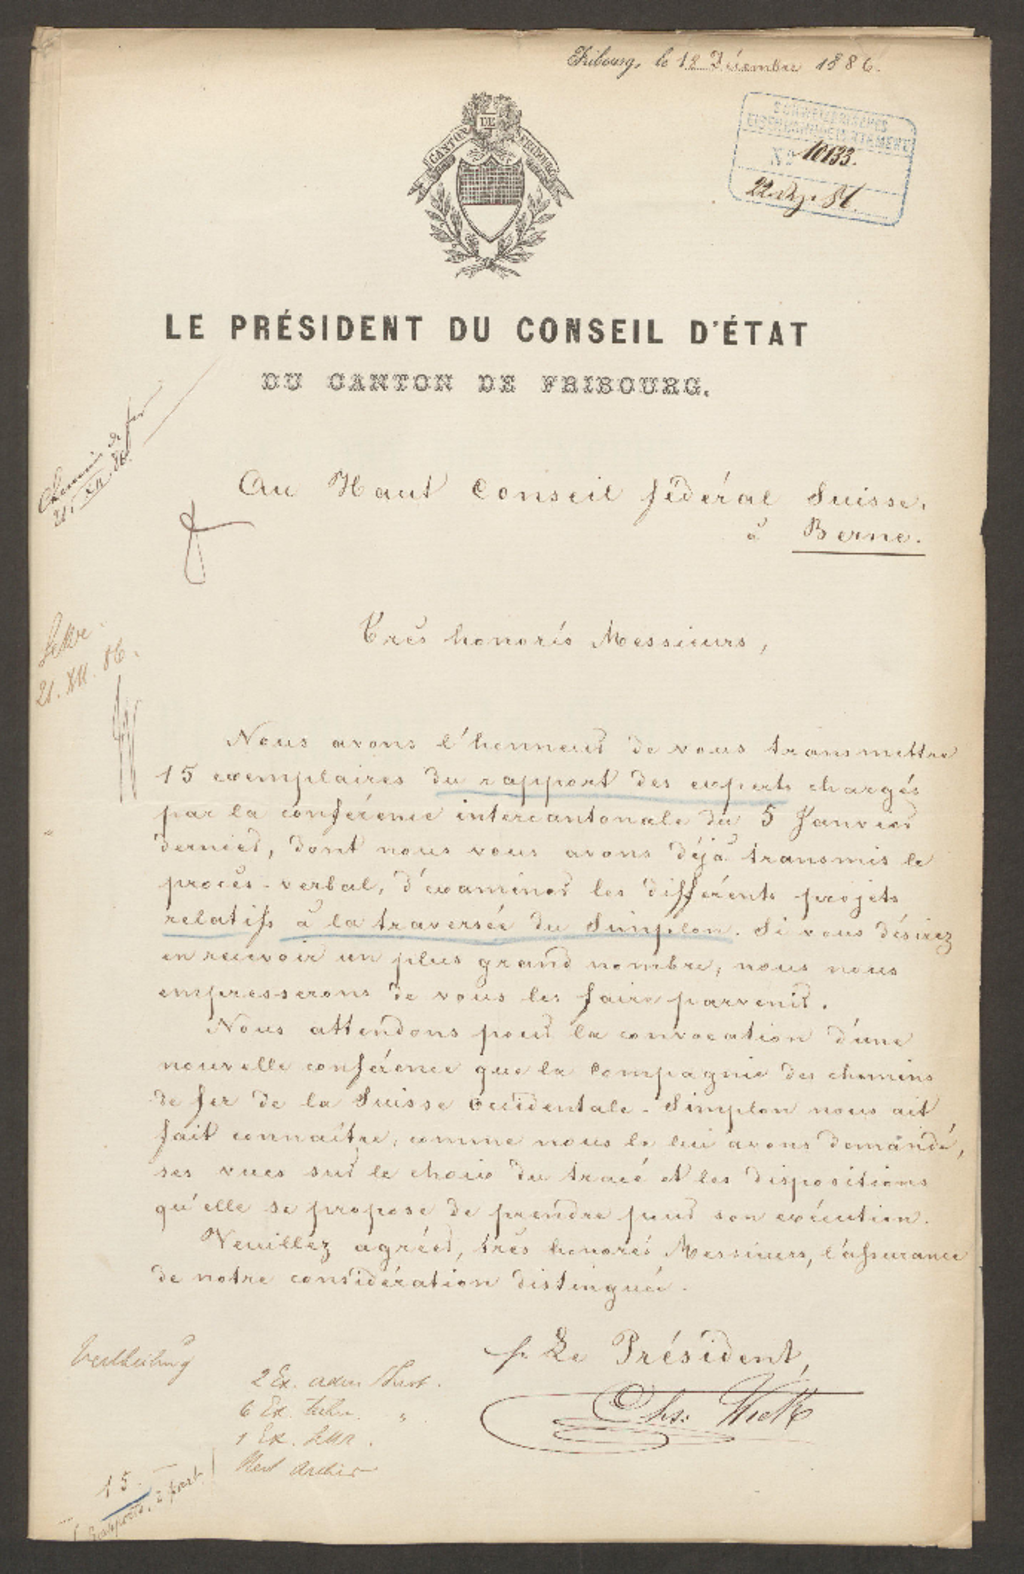 Fribourg, le 18 Décembre 1886.
CANTON DE FRIBOURG
SCHWEIZERISCHES
EISENBAHNDEPARTEMENT
No 10133.
22. Dez. 86.
LE PRÉSIDENT DU CONSEIL D'ÉTAT
DU CANTON DE FRIBOURG.
Chemins de fer
21. XII. 86.
Au Haut Conseil fédéral Suisse.
à Berne.
21. XII. 86.
Très honorés Messieurs,
Nous avons l'honneur de vous transmettre
15 exemplaires du rapport des experts chargés
par la conférence intercantonale du 5 Janvier
dernier, dont nous vous avons déjà transmis le
procès-verbal, d'examiner les différents projets
relatifs à la traversée du Simplon. Si vous désirez
en recevoir un plus grand nombre, nous nous
empresserons de vous les faire parvenir.
Nous attendons pour la convocation d'une
nouvelle conférence que la Compagnie des chemins
de fer de la Suisse Occidentale-Simplon nous ait
fait connaître, comme nous le lui avons demandé,
ses vues sur le choix du tracé et les dispositions
qu'elle se propose de prendre pour son exécution.
Veuillez agréer, très honorés Messieurs, l'assurance
de notre considération distinguée.
p. Le Président,
Vertheilung
2 Ex. admin.
6 Ex. techn. "
1 Ex.
Rest Archiv
15.